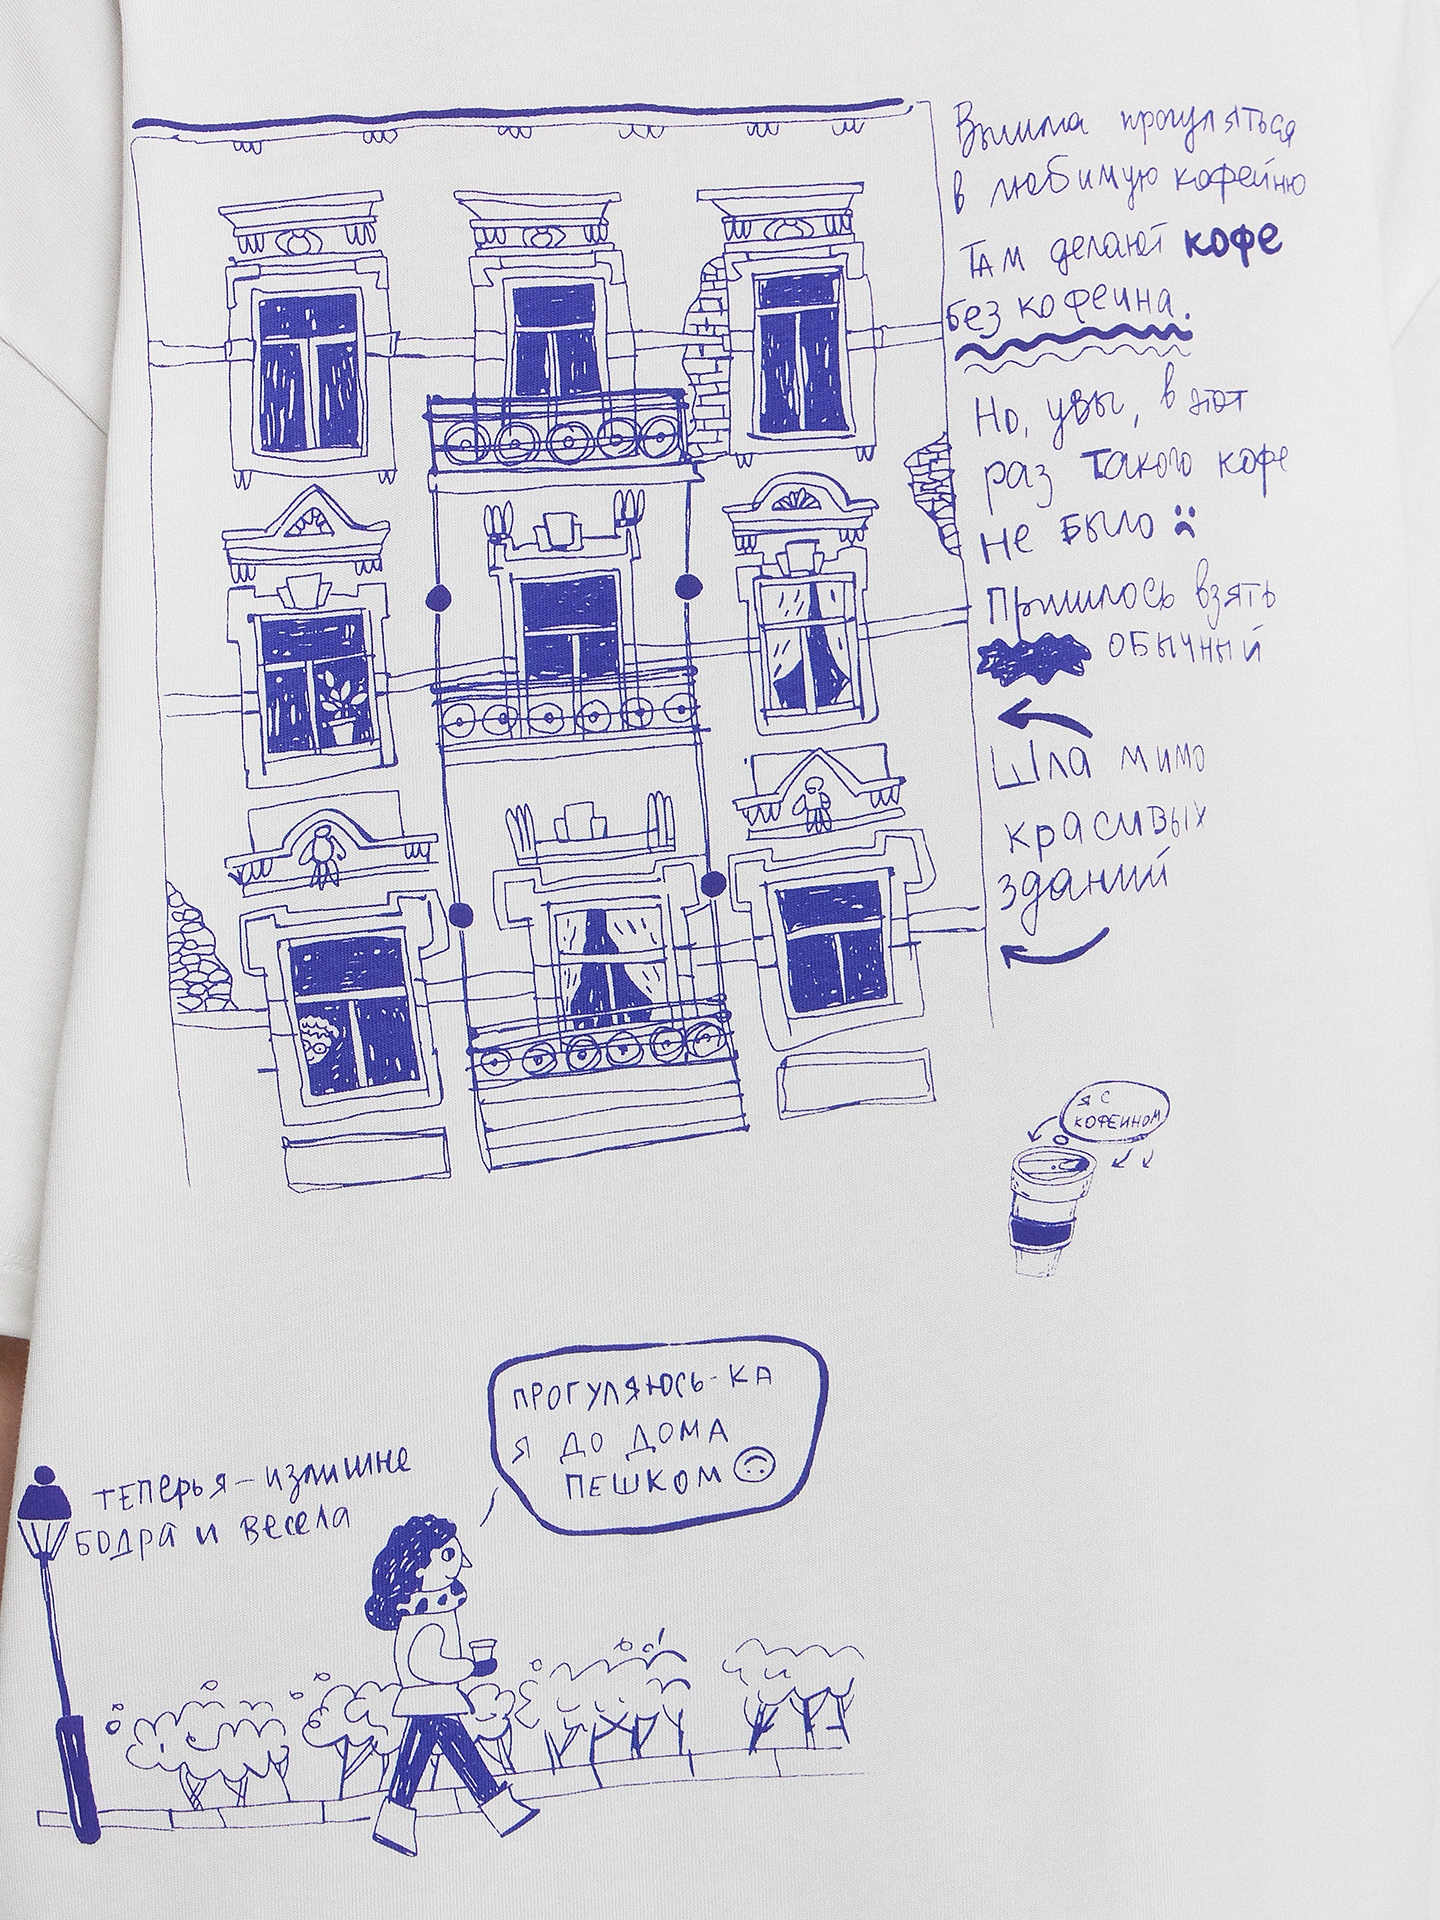 Вышла прогуляться
в любимую кофейню
Там делают кофе
без кофеина.
Но, увы, в этот
раз такого кофе
не было
Пришлось взять
обычный
Шла мимо
красивых
зданий
я с
кофеином
ПРОГУЛЯЮСЬ-КА
Я ДО ДОМА
ПЕШКОМ
теперь я – излишне
бодра и весела